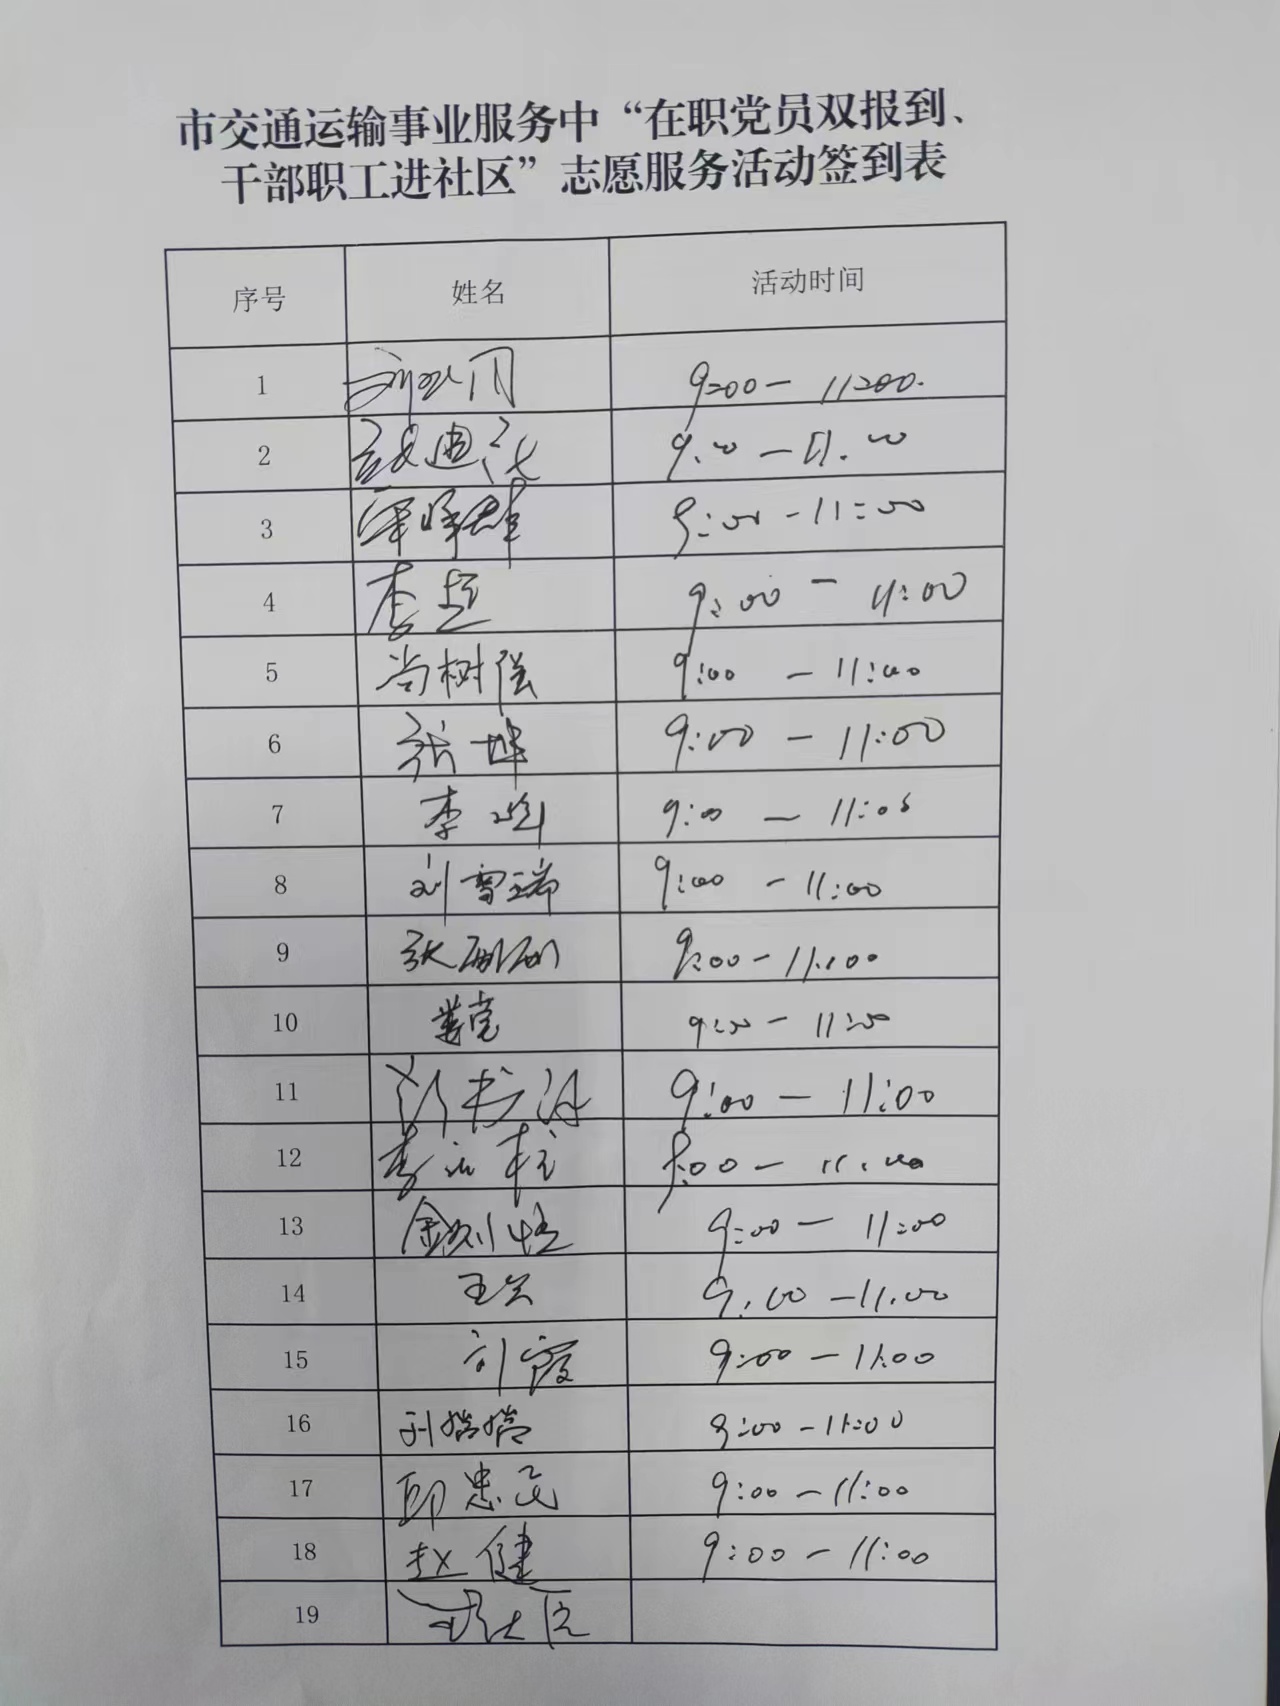 市交通运输事业服务中“在职党员双报到、
干部职工进社区”志愿服务活动签到表
序号 姓名 活动时间
1 9:00— 11:00.
2 9:00 — 11:00
3 9:00 - 11:00
4 李 9:00 — 11:00
5 尚树强 9:00 — 11:00
6 张坤 9:00 — 11:00
7 李 9:00 — 11:00
8 刘雪瑞 9:00 - 11:00
9 张丽丽 9:00 - 11:00
10 9:00 - 11:00
11 9:00 — 11:00
12 李 柱 9:00 — 11:00
13 9:00 — 11:00
14 王 9:00 — 11:00
15 刘霞 9:00 — 11:00
16 刘 9:00 - 11:00
17 邱忠民 9:00 — 11:00
18 赵健 9:00 — 11:00
19